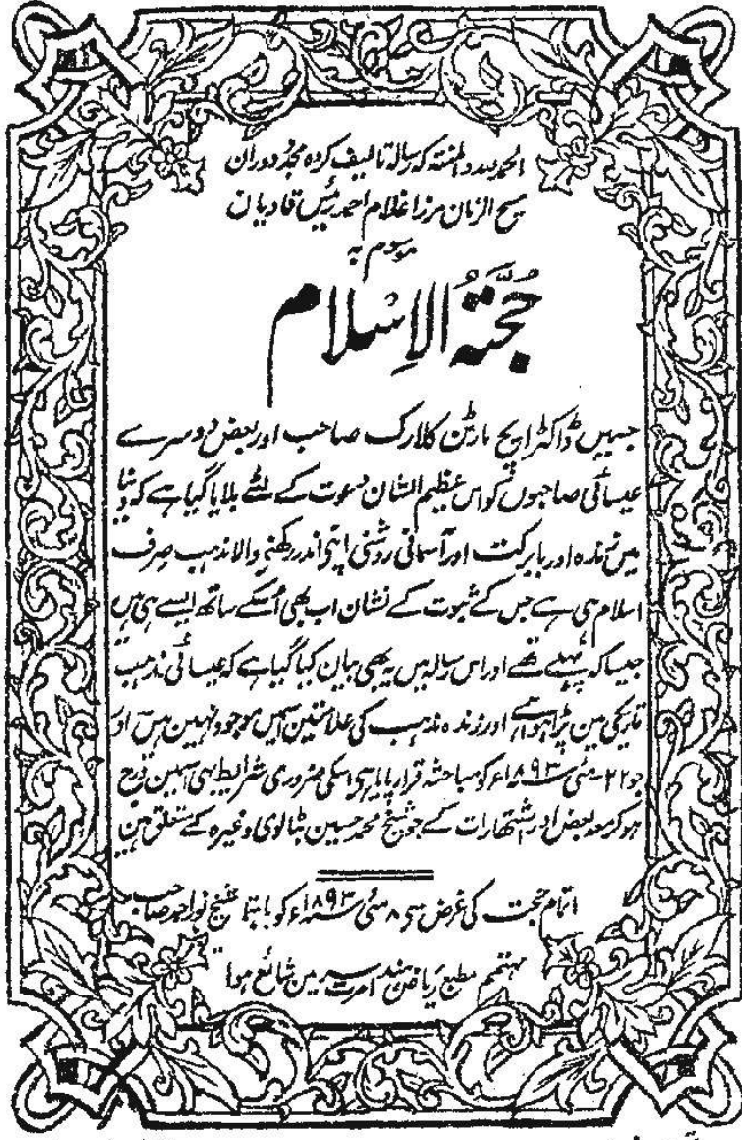 الحمد للہ والمنتہ کہ رسالہ تالیف کردہ مجدد دوران
مسیح الزمان مرزا غلام احمد رئیس قادیان
موسوم بہ
حُجَّةُ الاِسْلام
جسمیں ڈاکٹر ایچ مارٹن کلارک صاحب اور بعض دوسرے
عیسائی صاحبوں کو اس عظیم الشان دعوت کے لئے بلایا گیا ہے کہ دنیا
میں زندہ اور بابرکت اور آسمانی روشنی اپنی اندر رکھنی والا مذہب صرف
اسلام ہی ہے جس کے ثبوت کے نشان اب بھی اُسکے ساتھ ایسے ہی ہیں
جیسا کہ پہلے تھے اور اس رسالہ میں یہ بھی بیان کیا گیا ہے کہ عیسائی مذہب
تاریکی مین پڑا ہوا ہے اور زندہ مذہب کی علامتین اسمیں موجود نہین ہیں اور
جو ۲۲ مئی ۱۸۹۳ء کو مباحثہ قرار پایا ہی اسکی ضروری شرایط بہی اسمین درج
ہو کر معہ بعض اور اشتہارات کے جو شیخ محمد حسین بٹالوی وغیرہ کے متعلق ہین
اتمام حجت کی غرض سی ۸ مئی ۱۸۹۳ء کو باہتمام شیخ نور احمد صاحب
مہتمم مطبع ریاض ہند امرتسر مین شائع ہوا